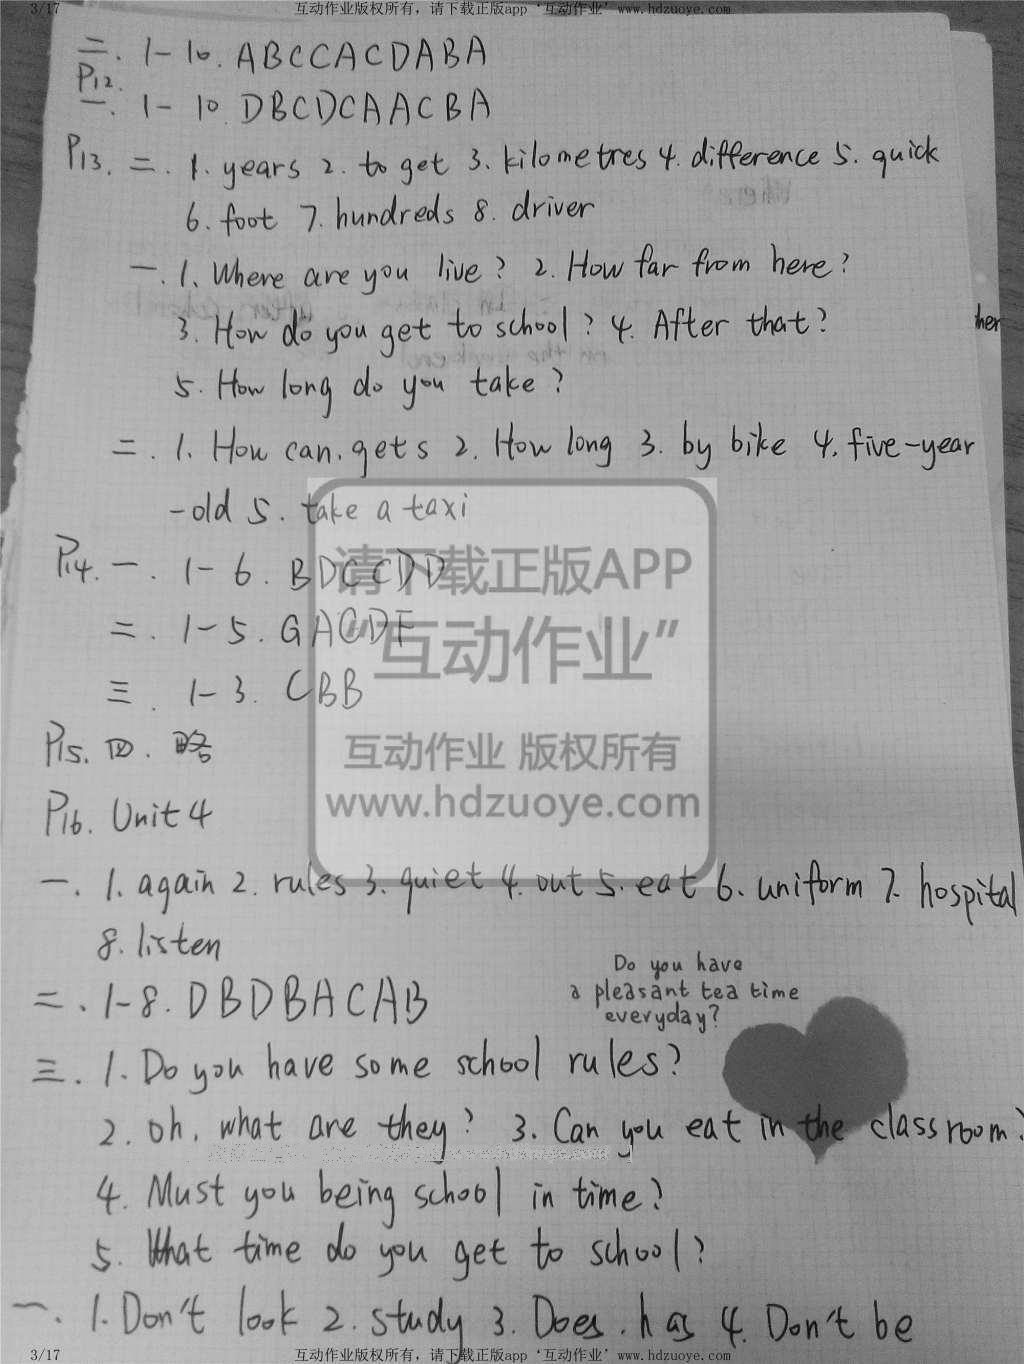 3/17 互动作业版权所有，请下载正版app‘互动作业’www.hdzuoye.com
二. 1-10. ABCCACDABA
P12.
一. 1-10. DBCDCAACBA
P13. 二. 1. years 2. to get 3. kilometres 4. difference 5. quick
6. foot 7. hundreds 8. driver
一. 1. Where are you live? 2. How far from here?
3. How do you get to school? 4. After that?
her
5. How long do you take?
二. 1. How can. gets 2. How long 3. by bike 4. five-year
-old 5. take a taxi
P14. 一. 1-6. BDCCDD
二. 1-5. GACDF
三. 1-3. CBB
请下载正版APP
“互动作业”
互动作业 版权所有
www.hdzuoye.com
P15. 四. 略
P16. Unit 4
一. 1. again 2. rules 3. quiet 4. out 5. eat 6. uniform 7. hospital
8. listen
二. 1-8. DBDBACAB
Do you have
a pleasant tea time
everyday?
三. 1. Do you have some school rules?
2. oh. what are they? 3. Can you eat in the classroom?
4. Must you being school in time?
5. What time do you get to school?
一. 1. Don't look 2. study 3. Does. has 4. Don't be
3/17 互动作业版权所有，请下载正版app‘互动作业’www.hdzuoye.com